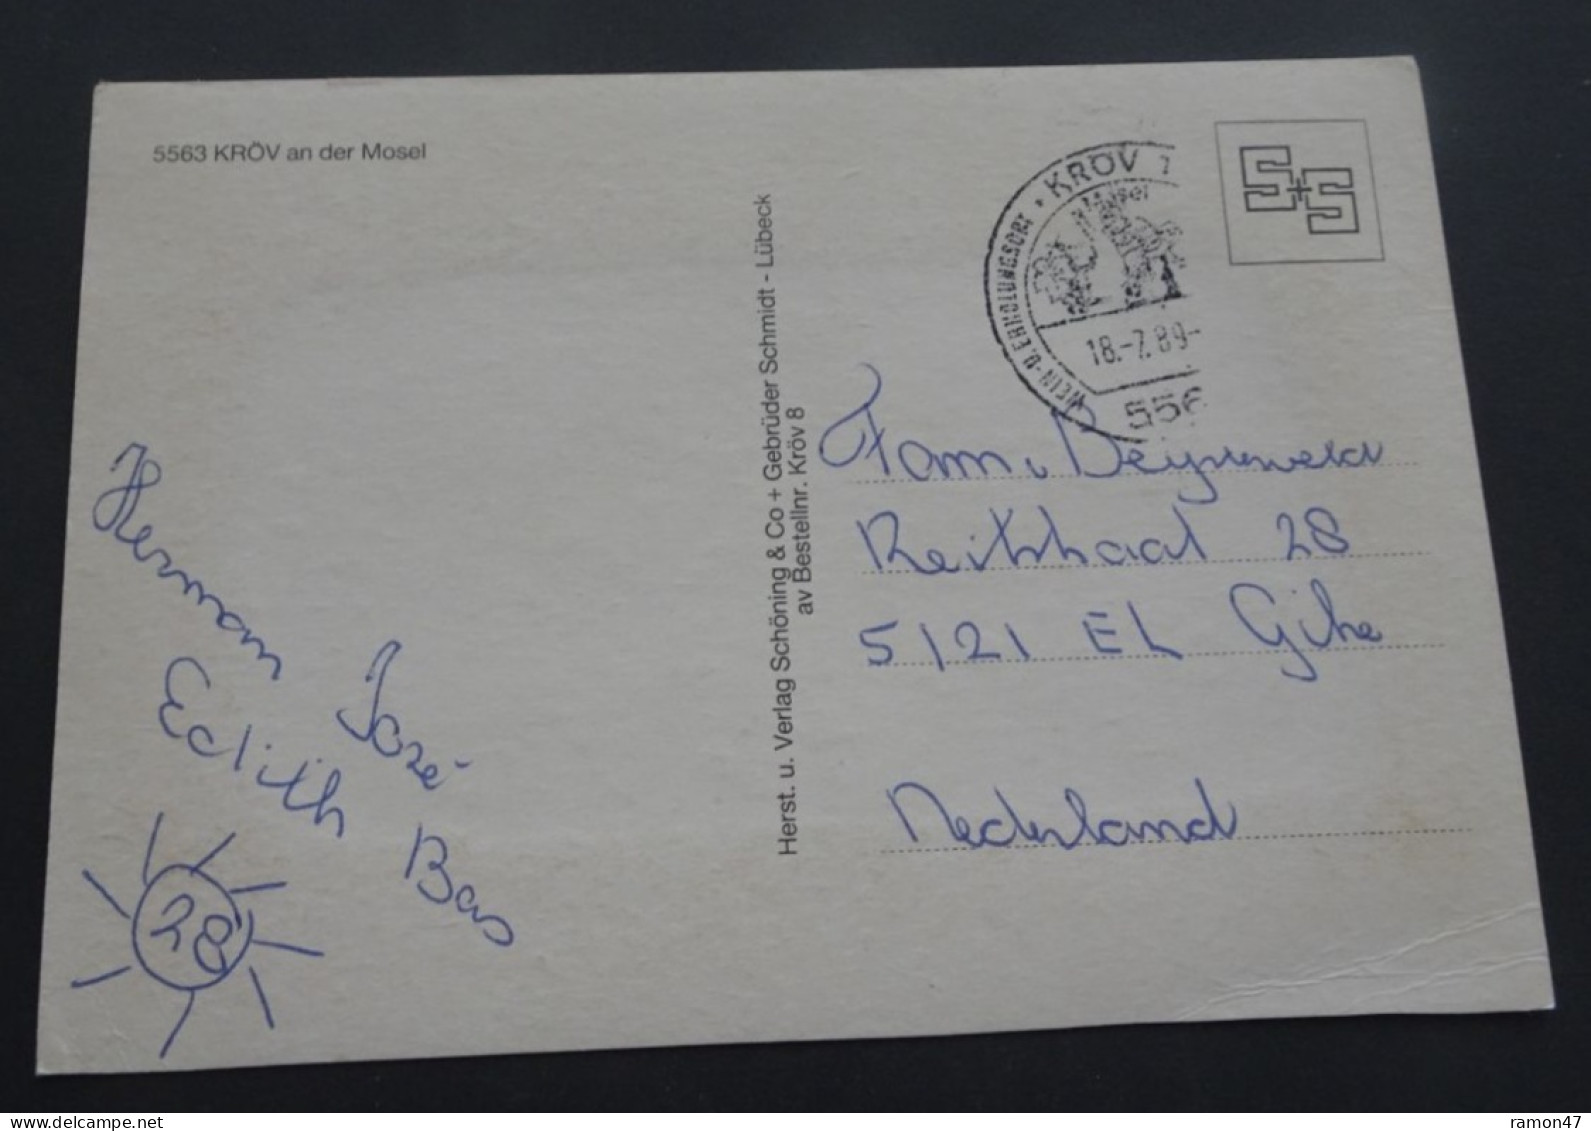 5563 KRÖV an der Mosel
Herst. u. Verlag Schöning & Co + Gebrüder Schmidt - Lübeck
av Bestellnr. Kröv 8
S+S
KRÖV 1
WEIN- U. ERHOLUNGSORT
Mosel
18.-7.89-
556
Herman
José
Edith
Bas
28
Fam.
28
5121 EL
Nederland
www.delcampe.net
ramon47